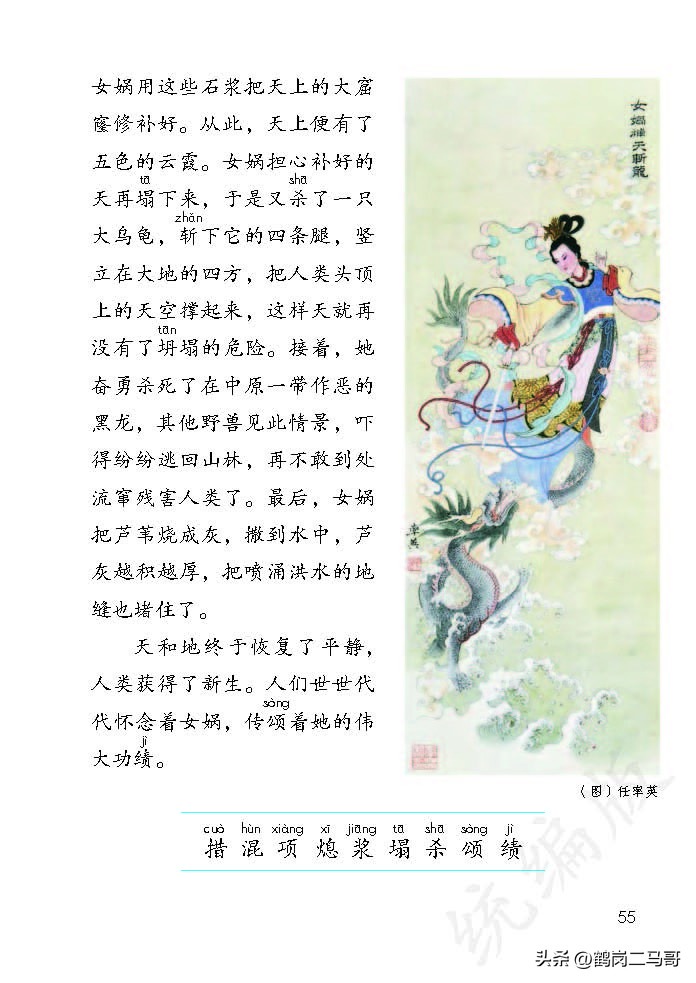 女娲用这些石浆把天上的大窟
窿修补好。从此，天上便有了
五色的云霞。女娲担心补好的
tā shā
天再塌下来，于是又杀了一只
zhǎn
大乌龟，斩下它的四条腿，竖
立在大地的四方，把人类头顶
上的天空撑起来，这样天就再
tān
没有了坍塌的危险。接着，她
奋勇杀死了在中原一带作恶的
黑龙，其他野兽见此情景，吓
得纷纷逃回山林，再不敢到处
流窜残害人类了。最后，女娲
把芦苇烧成灰，撒到水中，芦
灰越积越厚，把喷涌洪水的地
缝也堵住了。
天和地终于恢复了平静，
人类获得了新生。人们世世代
sòng
代怀念着女娲，传颂着她的伟
jì
大功绩。
（图）任率英
cuò hùn xiàng xī jiāng tā shā sòng jì
措 混 项 熄 浆 塌 杀 颂 绩
55
统编版
头条 @鹤岗二马哥